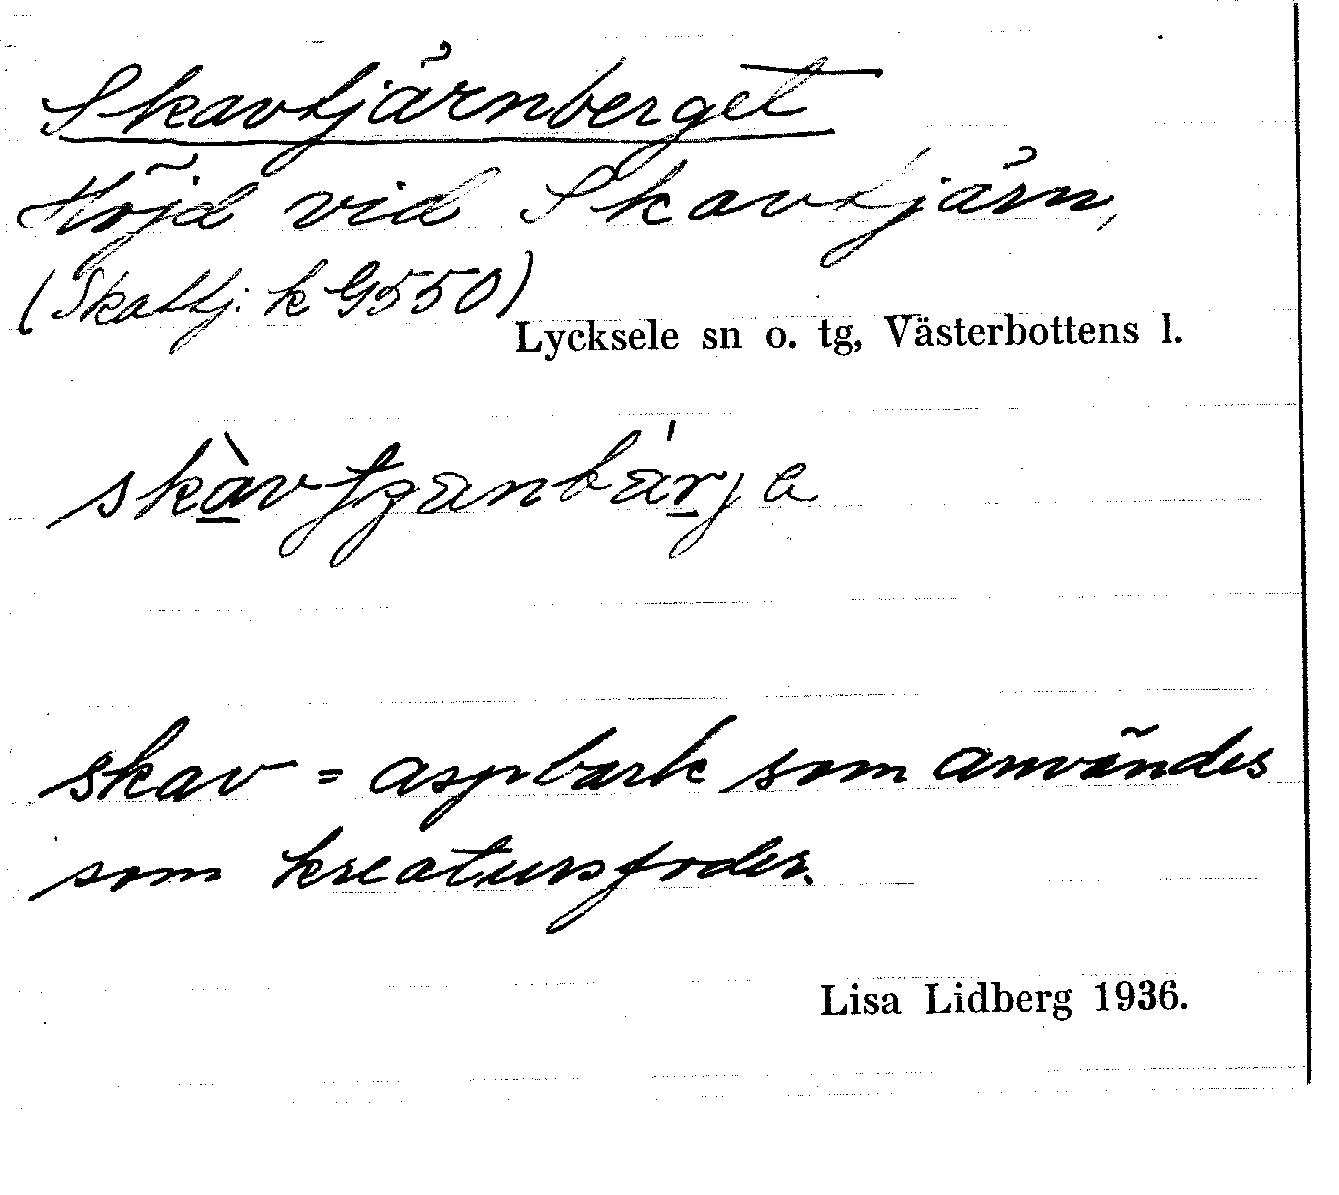 Skavtjärnberget
Höjd vid Skavtjärn,
(Skattj. k G550)
Lycksele sn o. tg, Västerbottens l.
skav = aspbark som användes
som kreatursfoder.
Lisa Lidberg 1936.